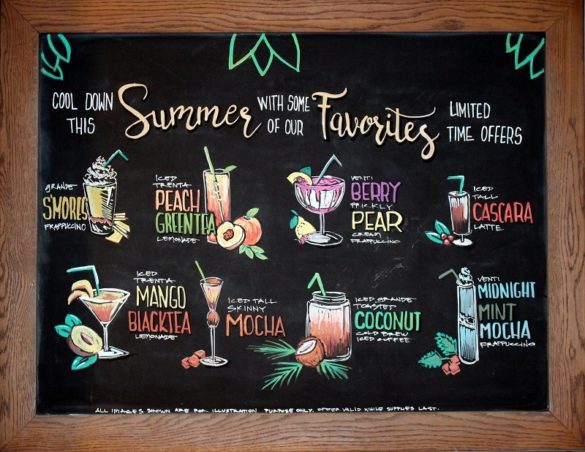 COOL DOWN
THIS
Summer
WITH SOME
OF OUR
Favorites
LIMITED
TIME OFFERS
GRANDE
S'MORES
FRAPPUCCINO
ICED
TRENTA
PEACH
GREENTEA
LEMONADE
VENTI
BERRY
PRICKLY
PEAR
CREAM
FRAPPUCCINO
ICED
TALL
CASCARA
LATTE
ICED
TRENTA
MANGO
BLACKTEA
LEMONADE
ICED TALL
SKINNY
MOCHA
ICED GRANDE
TOASTED
COCONUT
COLD BREW
ICED COFFEE
VENTI
MIDNIGHT
MINT
MOCHA
FRAPPUCCINO
ALL IMAGES SHOWN ARE FOR ILLUSTRATION PURPOSE ONLY. OFFER VALID WHILE SUPPLIES LAST.